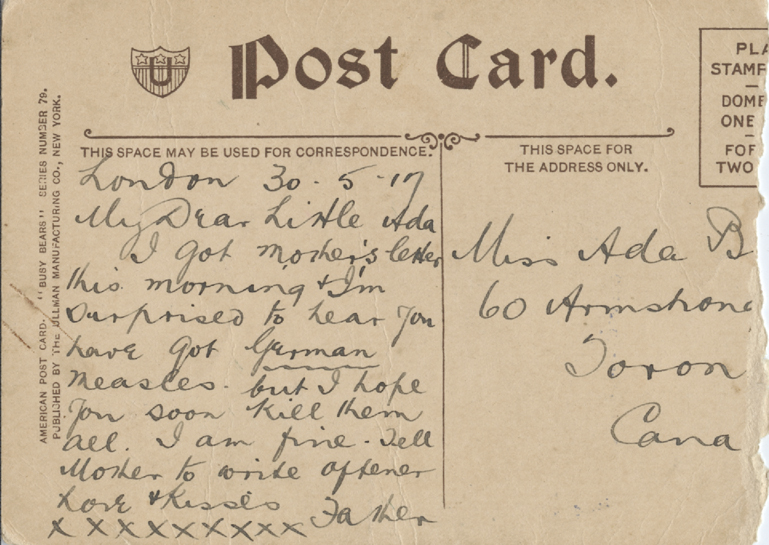 U
Post Card.
PLA
STAMP
DOME
ONE
FOR
TWO
AMERICAN POST CARD. "BUSY BEARS" SERIES NUMBER 79.
PUBLISHED BY THE ULLMAN MANUFACTURING CO., NEW YORK.
THIS SPACE MAY BE USED FOR CORRESPONDENCE.
London 30-5-17
My Dear Little Ada
I got mother's letter
this morning & I'm
surprised to hear you
have got German
measles. but I hope
you soon kill them
all. I am fine. Tell
Mother to write oftener
Love & Kisses Father
x x x x x x x x x
THIS SPACE FOR
THE ADDRESS ONLY.
Miss Ada B
60 Armstrong
Toron
Cana